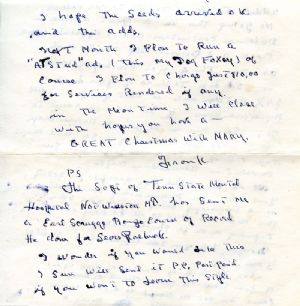 I hope the Seeds arrived ok
and the adds.
Next Month I Plan To Run a
"At Stud" ad, (This My Dog Foxey) of
Course I Plan To Charge Just $10,00
for Services Rendered if any.
in the Mean Time I Will Close
with hopes you have a —
GREAT Christmas With MARY.
Frank
PS
The Supt of Tenn State Mental
Hospital has Sent Me
a Earl Scruggs Banjo Course of Record
He
I Wonder if you Would Like This
I Sure Will Sent it P.P. Post paid
if you Want to Learn This Style